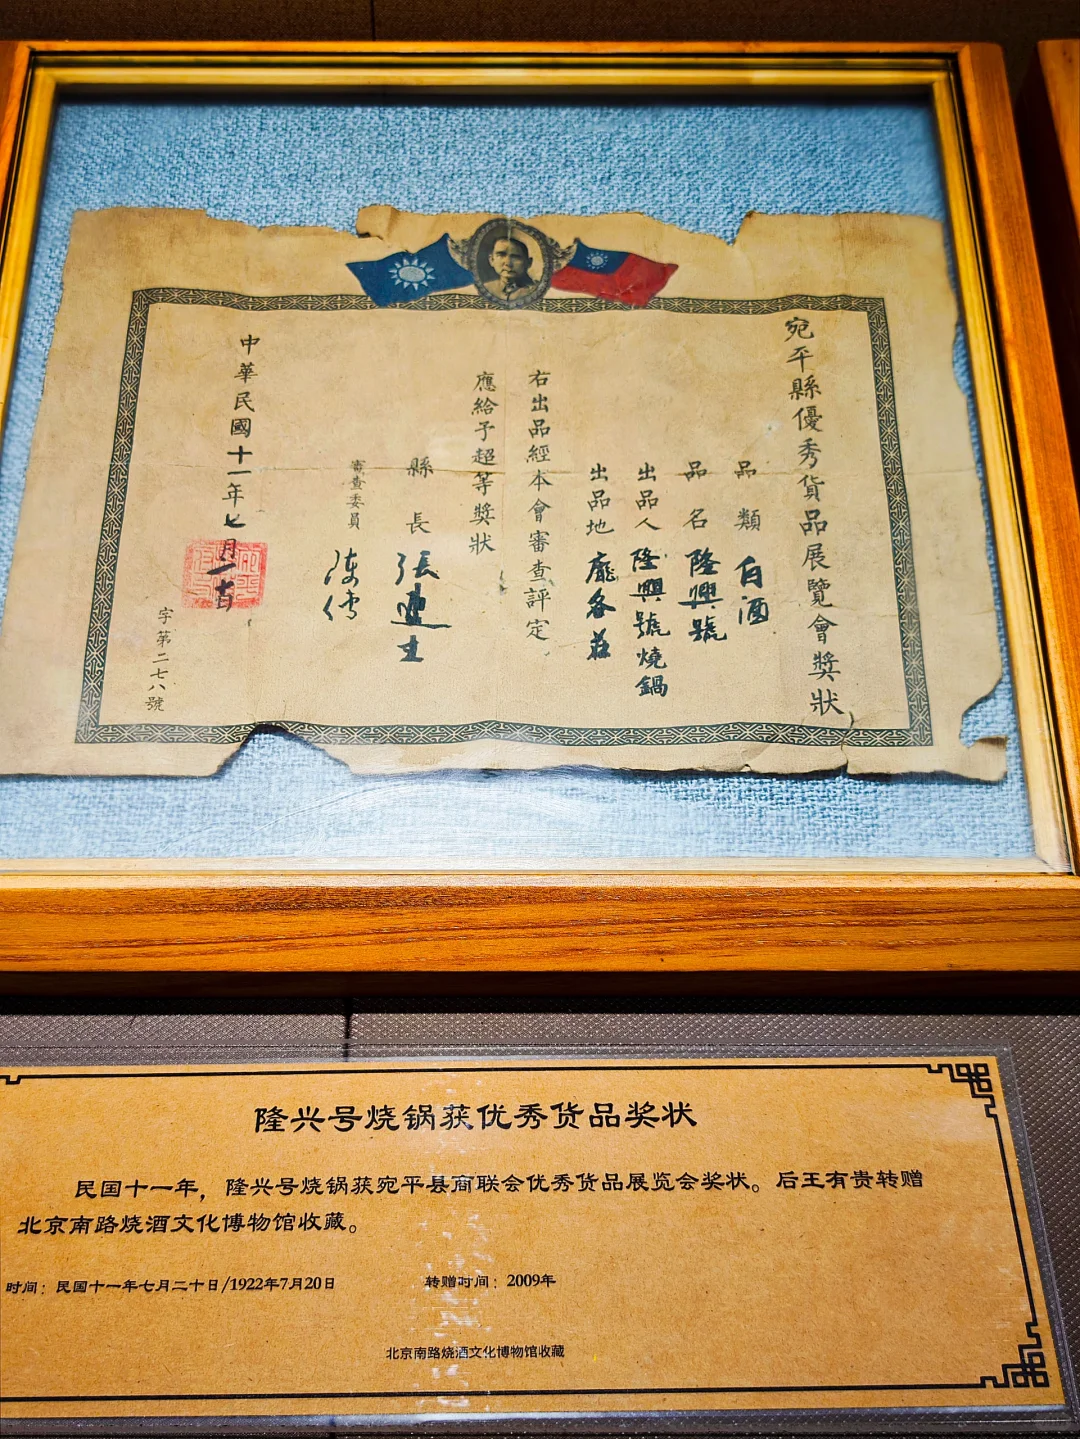 宛平縣優秀貨品展覽會獎狀
品類 白酒
品名 隆興號
出品人 隆興號燒鍋
出品地 龐各莊
右出品經本會審查評定
應給予超等獎狀
縣長 張
審查委員 陳
中華民國十一年七月
字第二七八號
隆兴号烧锅获优秀货品奖状
民国十一年，隆兴号烧锅获宛平县商联会优秀货品展览会奖状。后王有贵转赠
北京南路烧酒文化博物馆收藏。
时间：民国十一年七月二十日/1922年7月20日 转赠时间：2009年
北京南路烧酒文化博物馆收藏